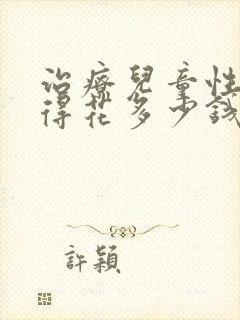 治療兒童性
得花多少錢
許穎